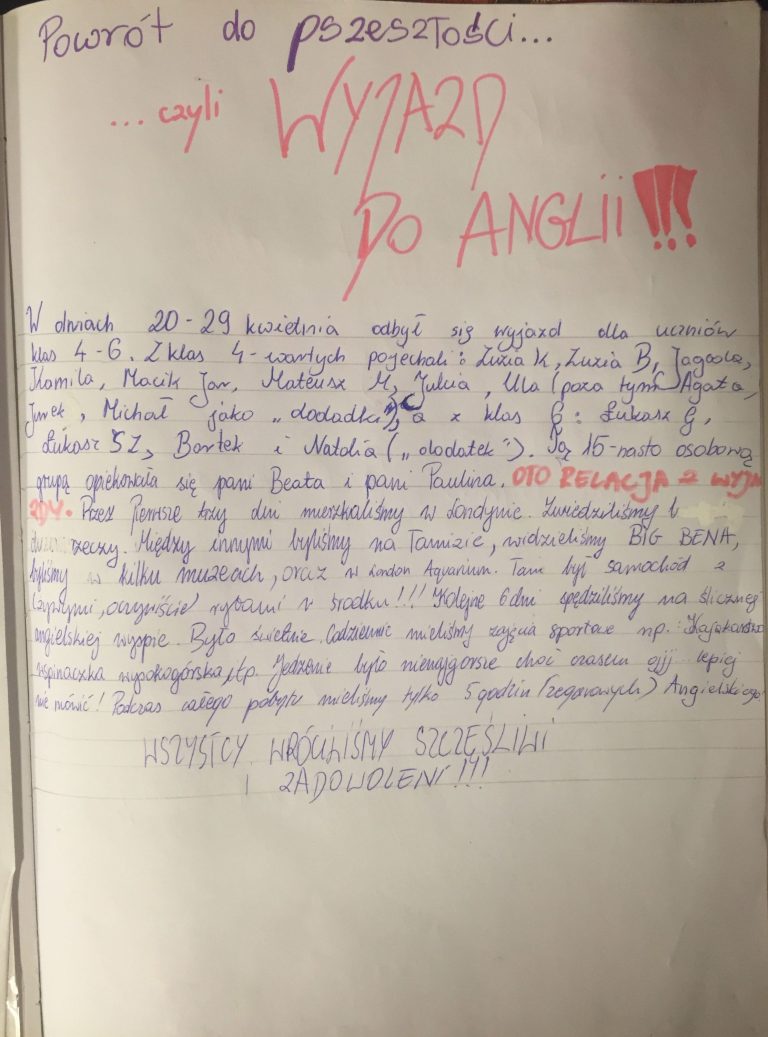 Powrót do pszeszłości...
... czyli WYJAZD
DO ANGLII!!!
W dniach 20-29 kwietnia odbył się wyjazd dla uczniów
klas 4-6. Z klas 4-wartych pojechali: Zuzia K, Zuzia B, Jagoda,
Kamila, Macik Jan, Mateusz M, Julcia, Ula (poza tym Agata,
Jurek, Michał jako „dodadki"), a z klas 6: Łukasz G,
Łukasz SZ, Bartek i Natalia („dodatek"). Tą 15-nasto osobową
grupą opiekowała się pani Beata i pani Paulina. OTO RELACJA Z WYJA
ZDU. Przez Pierwsze trzy dni mieszkaliśmy w Londynie. Zwiedziliśmy
rzeczy. Między innymi byliśmy na Tamizie, widzieliśmy BIG BENA,
byliśmy w kilku muzeach, oraz w London Aquarium. Tam był samochód z
żywymi, oczywiście rybami w środku!!! Kolejne 6 dni spędziliśmy na ślicznej
angielskiej wyspie. Było świetnie. Codziennie mieliśmy zajęcia sportowe np.: Kajakarstwo
wspinaczka wysokogórska, itp. Jedzenie było nienajgorsze choć czasem ojj... lepiej
nie mówić! Podczas całego pobytu mieliśmy tylko 5 godzin (zegarowych) Angielskiego
WSZYSTCY WRÓCILIŚMY SZCZĘŚLIWI
I ZADOWOLENI!!!